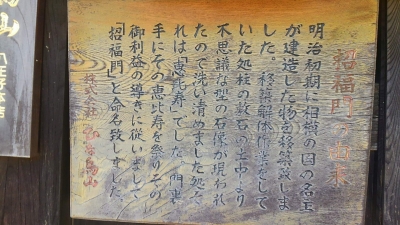 招福門の由来
明治初期に相模の国の名主
が建造した物を移築致しま
した。移築解体作業をして
いた処柱の敷石の土中より
不思議な型の石像が現われ
たので洗い清めました処そ
れは「恵比寿」でした。門裏
手にその恵比寿を祭りその
御利益の導きに従いまして
「招福門」と命名致しました
株式会社 うかい鳥山
鳥山
八王子本店